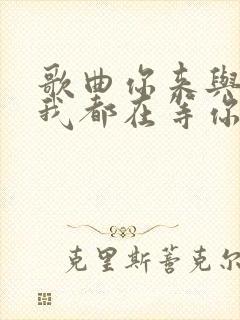 歌曲你来與
我都在等你
克里斯蒼克尔